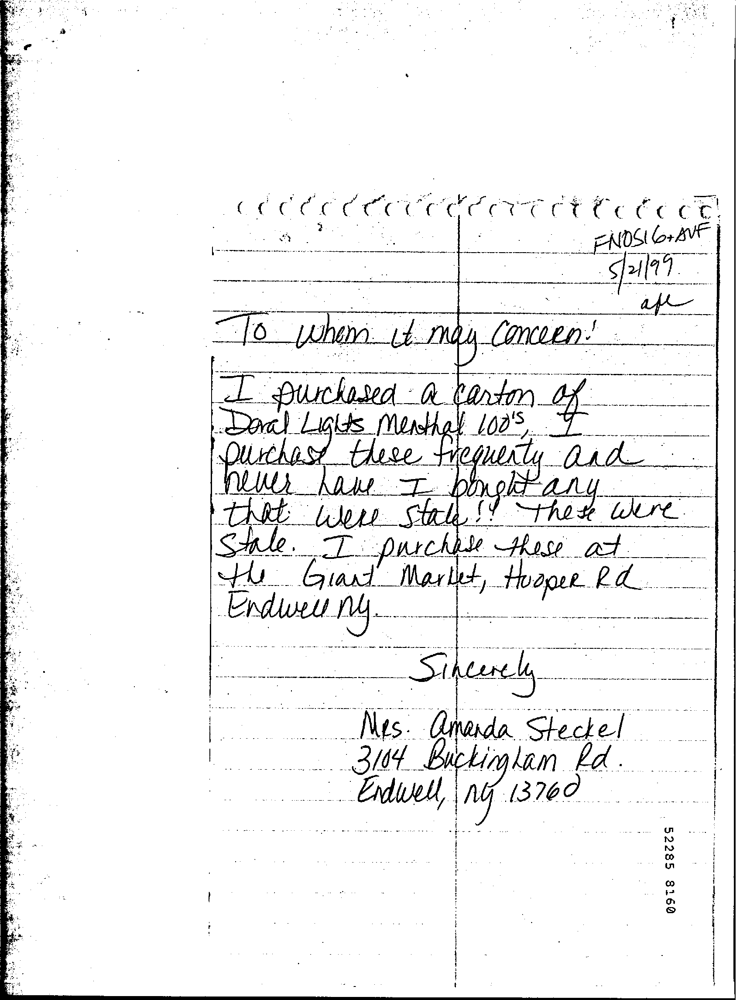 FNOSI6+AVF
5/21/99
afe
To whom it may concern!
I purchased a carton of
Doral Lights Menthol 100's, I
purchase these frequently and
never have I bought any
that were stale!! These were
Stale. I purchase these at
the Giant Market, Hooper Rd
Endwell ny.
Sincerely
Mrs. Amanda Steckel
3104 Buckingham Rd.
Endwell, ny 13760
52285 8160